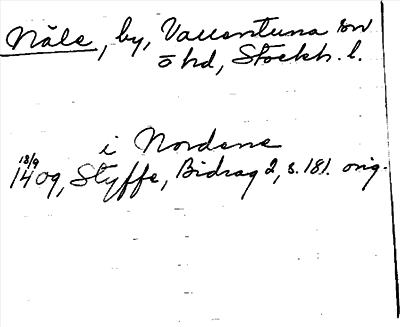 Nåle, by, Vallentuna sn
o hd, Stockh. l.
i Nordene
18/9
1409, Styffe, Bidrag 2, s. 181. orig.